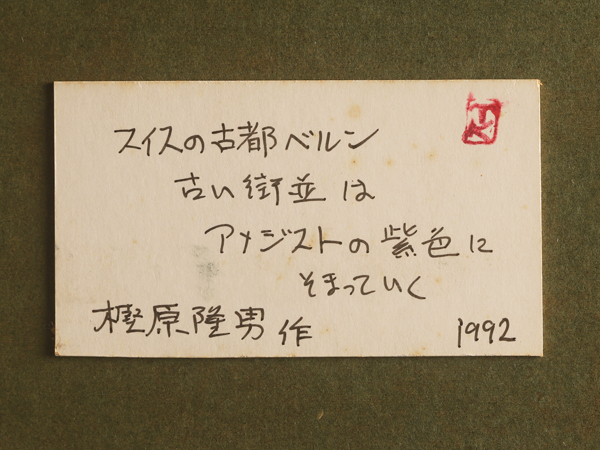 スイスの古都ベルン
古い街並は
アメジストの紫色に
そまっていく
樫原隆男 作
1992